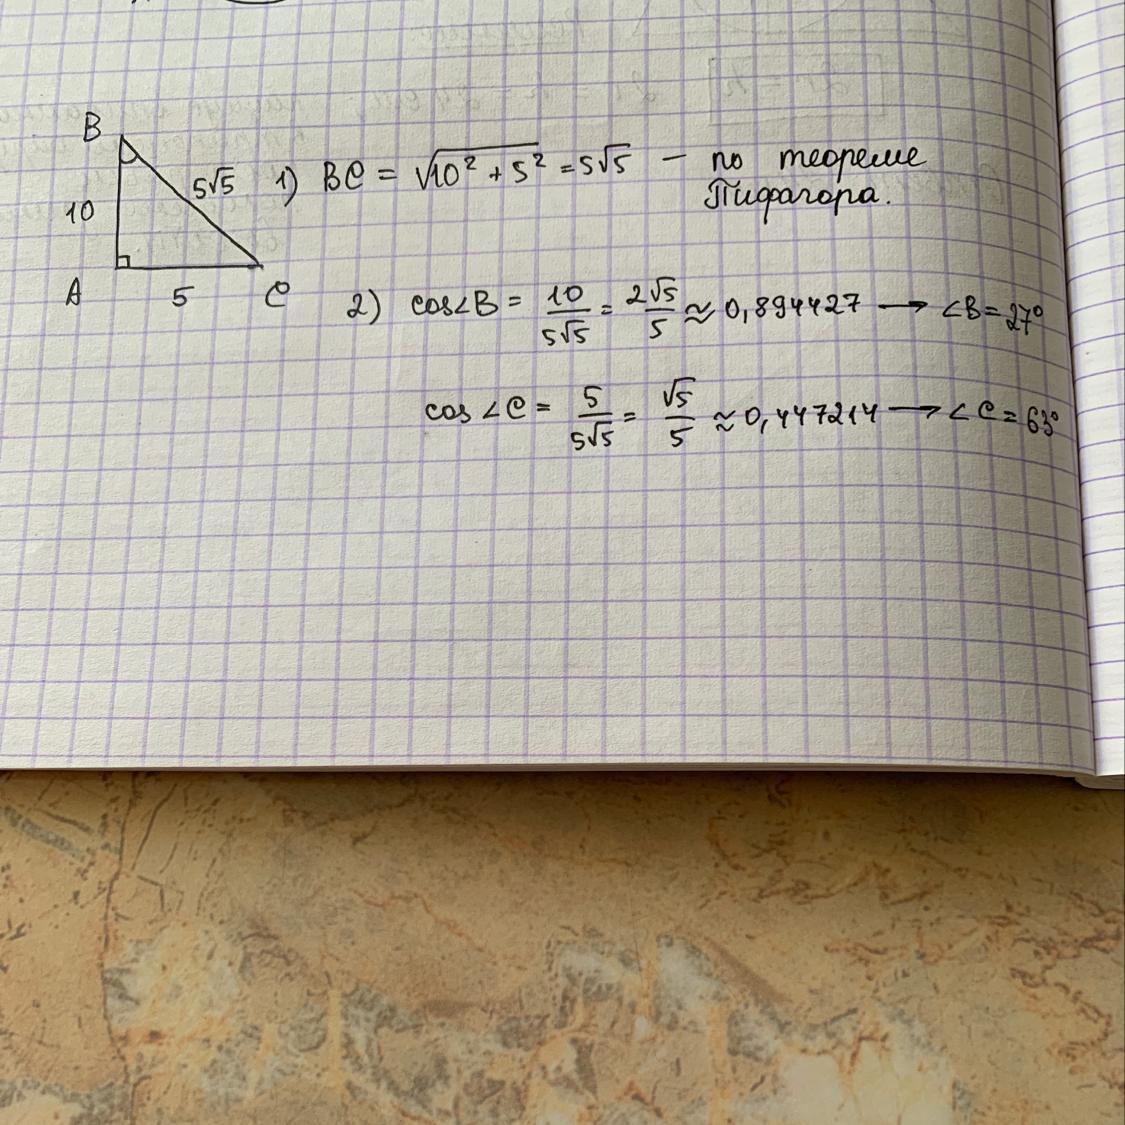 B
5√5
10
A
5
C
1) BC = √10² + 5² = 5√5 — по теореме
Пифагора.
2) cos∠B = 10/5√5 = 2√5/5 ≈ 0,894427 → ∠B = 27°
cos∠C = 5/5√5 = √5/5 ≈ 0,447214 → ∠C = 63°